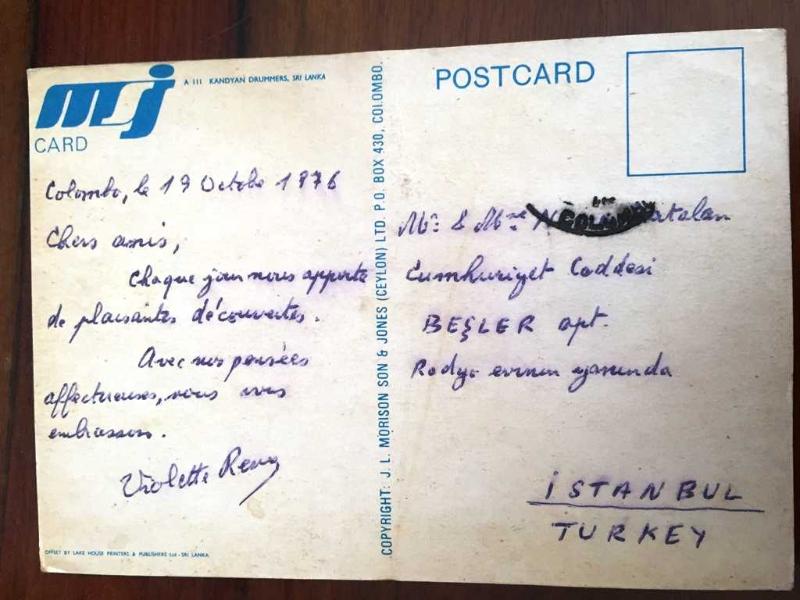 msj
CARD
A 111 KANDYAN DRUMMERS, SRI LANKA
Colombo, le 19 Octobre 1976
Chers amis,
Chaque jour nous apporte
de plaisantes découvertes.
Avec nos pensées
affectueuses, nous vous
embrassons.
Violette
OFFSET BY LAKE HOUSE PRINTERS & PUBLISHERS Ltd - SRI LANKA
COPYRIGHT: J. L. MORISON SON & JONES (CEYLON) LTD. P.O. BOX 430, COLOMBO.
POSTCARD
Mr & Mme
Cumhuriyet Caddesi
BEŞLER apt.
Radyo evinin yanında
İSTANBUL
TURKEY